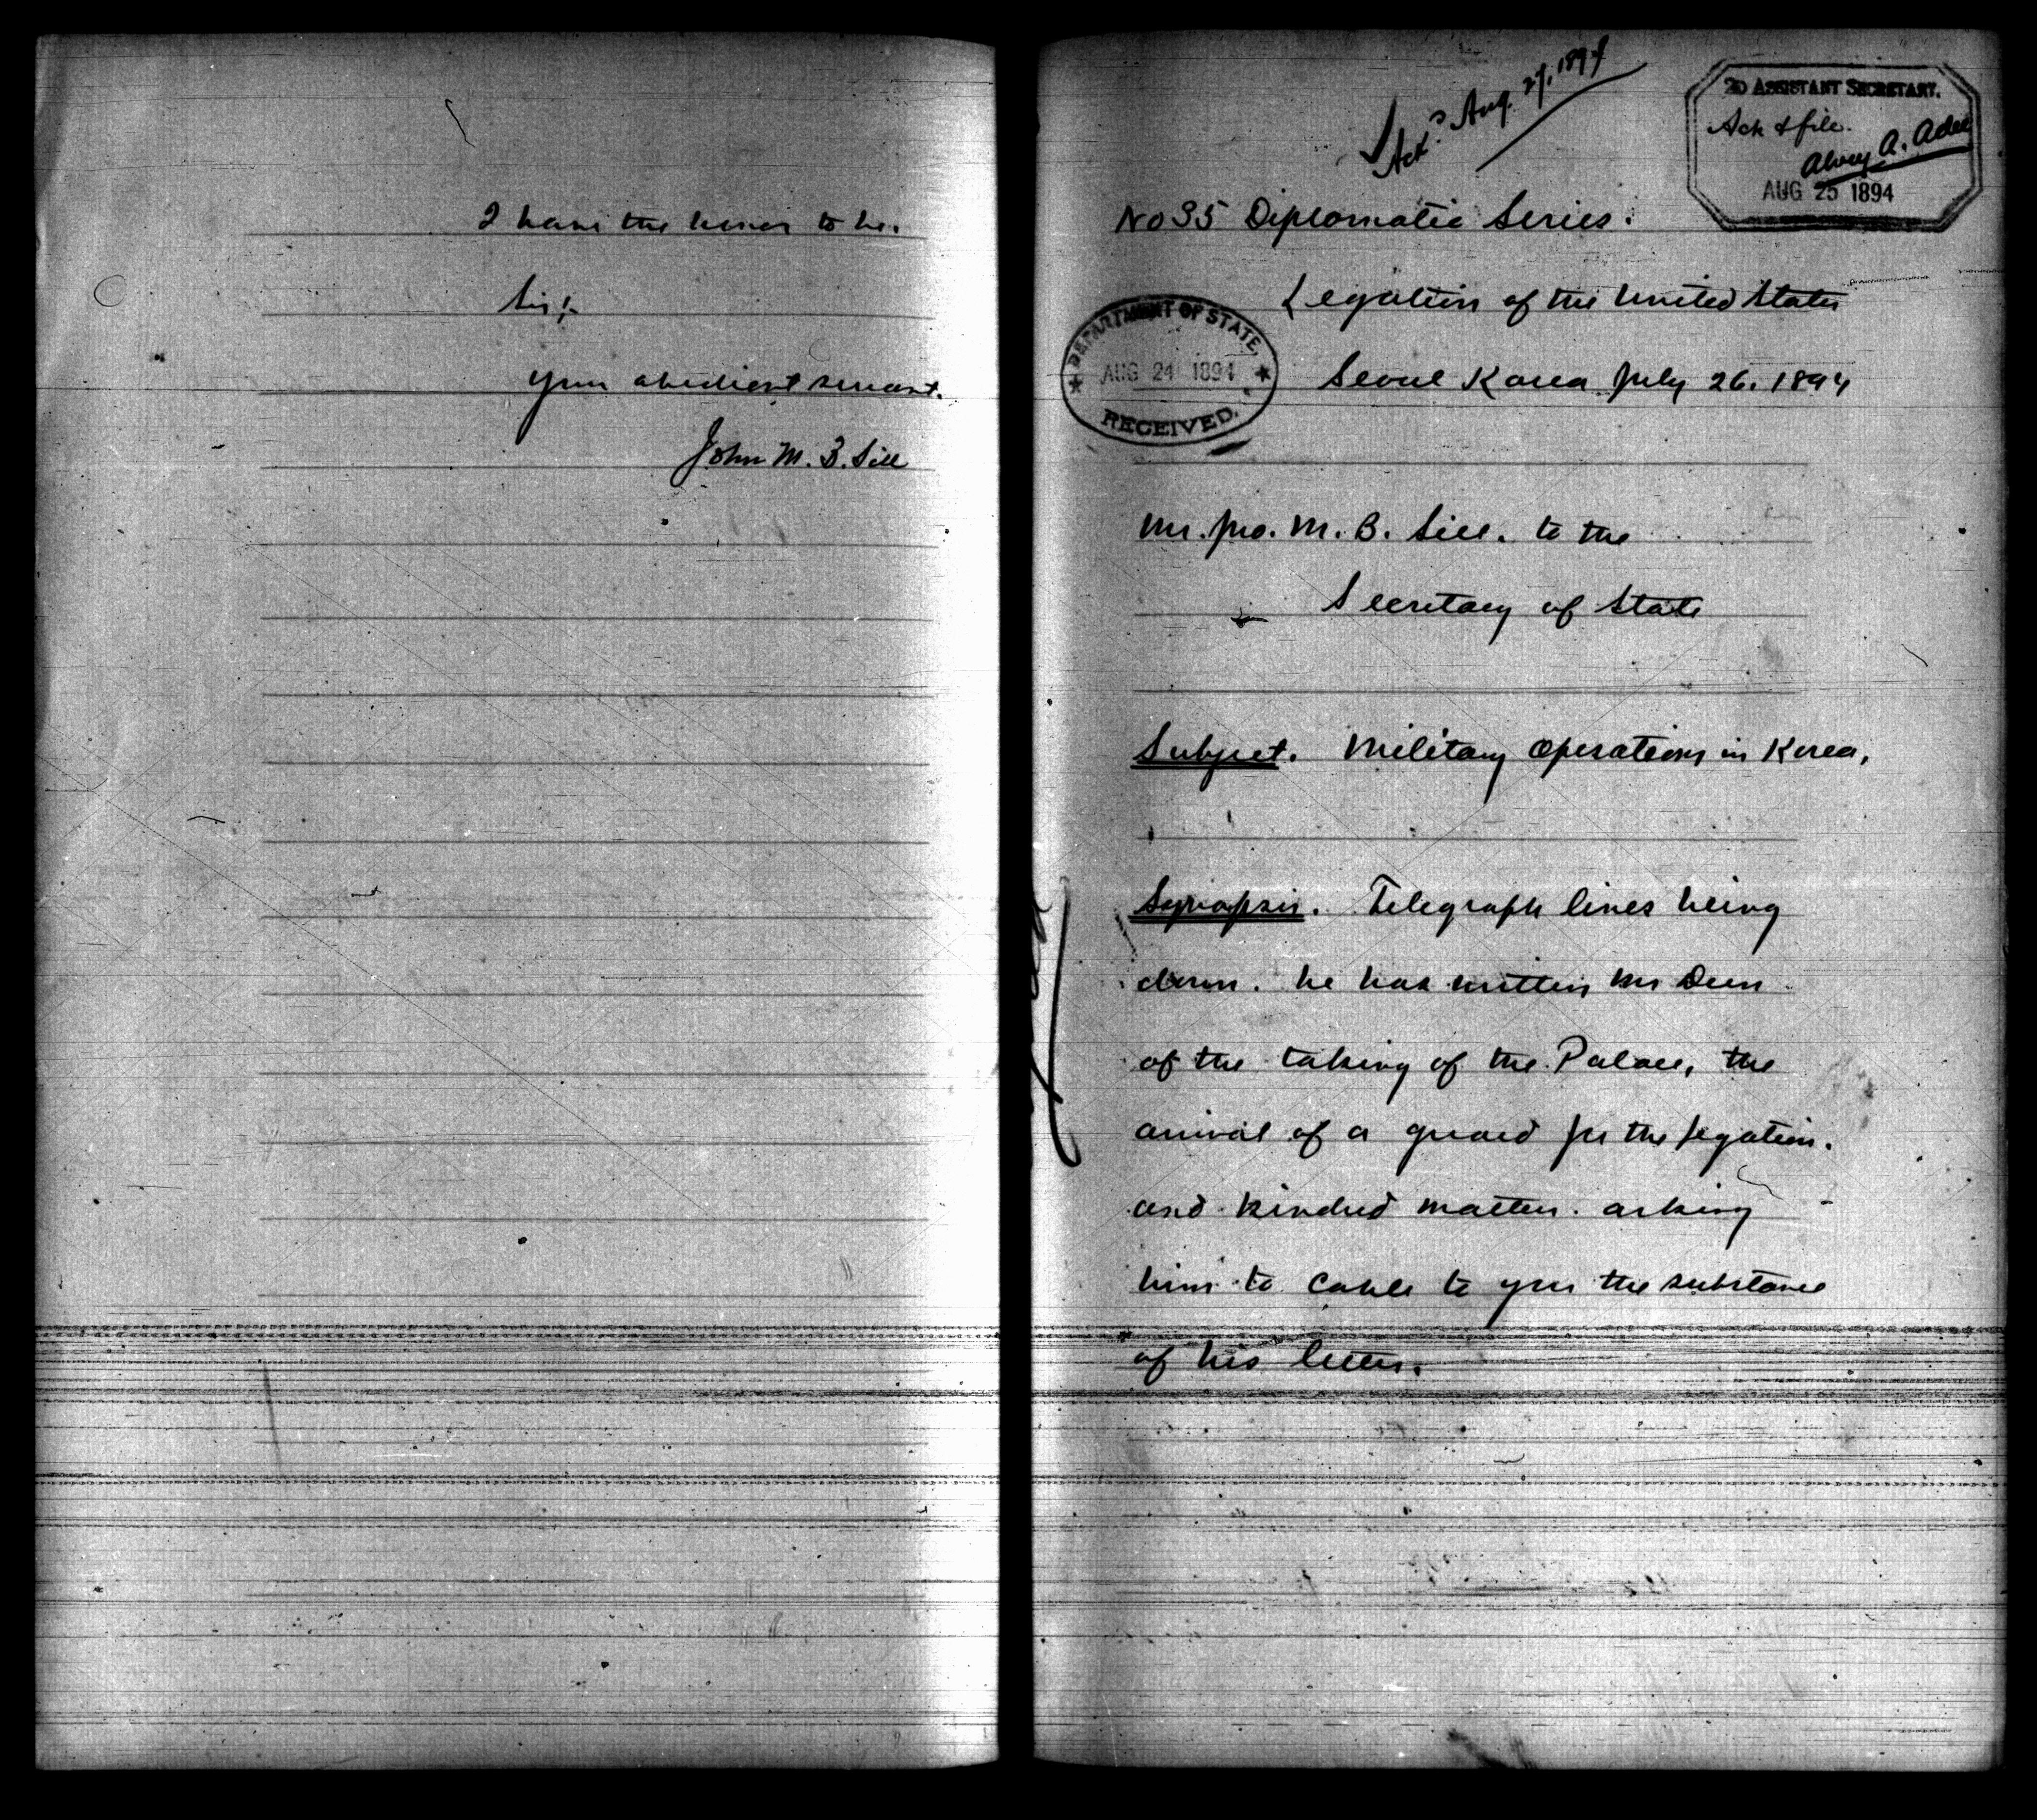 I have the honor to be.
Sir;-
Your obedient servant.
John M. B. Sill
Ackd Aug. 27, 1894
2D ASSISTANT SECRETARY.
Ack & file.
Alvey A. Adee
AUG 25 1894
No 35 Diplomatic Series.
Legation of the United States
DEPARTMENT OF STATE,
AUG 24 1894
RECEIVED.
Seoul Korea July 26. 1894
Mr. Jno. M. B. Sill. to the
Secretary of State
Subject. Military Operations in Korea,
Synopsis. Telegraph lines being
down. he has written Mr Dun
of the taking of the Palace, the
arrival of a guard for the legation.
and kindred matters. asking
him to cable to you the substance
of his letter.